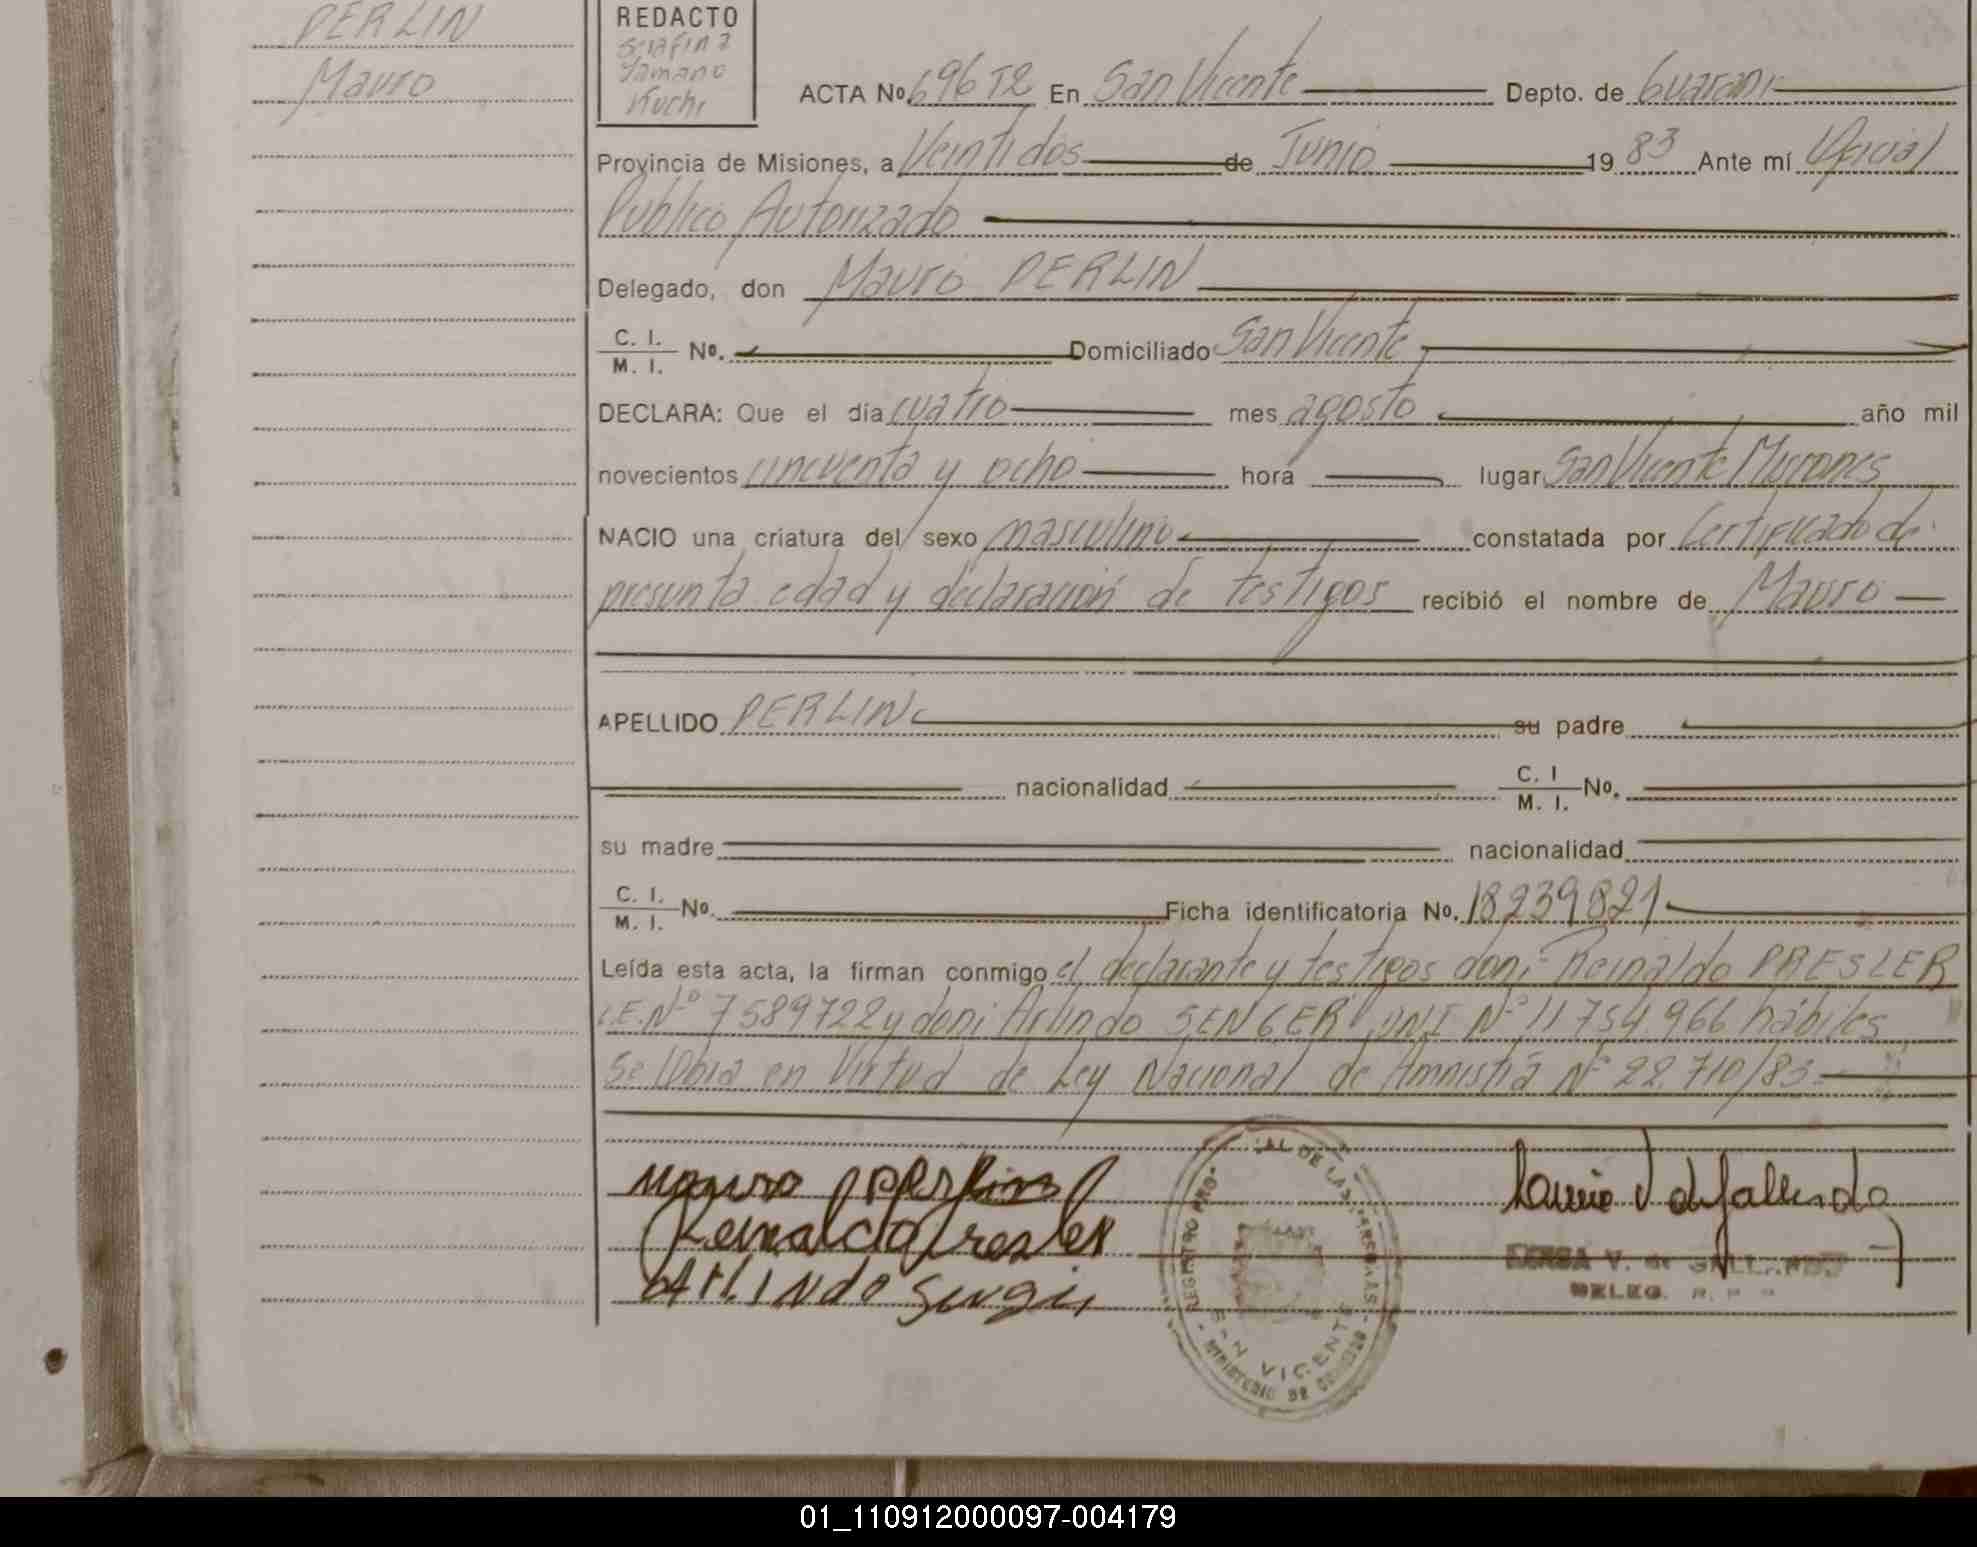 PERLIN
Mauro
REDACTO
Serafina
Yamano
Kuchi
ACTA No. 696 T2 En San Vicente Depto. de Guaraní
Provincia de Misiones, a Veintidos de Junio 19 83 Ante mí Oficial
Publico Autorizado
Delegado, don Mauro PERLIN
C. I.
M. I. No. Domiciliado San Vicente
DECLARA: Que el día cuatro mes agosto año mil
novecientos cincuenta y ocho hora lugar San Vicente Misiones
NACIO una criatura del sexo masculino constatada por Certificado de
presunta edad y declaración de testigos recibió el nombre de Mauro
APELLIDO PERLIN su padre
nacionalidad C. I
M. I. No.
su madre nacionalidad
C. I.
M. I. No. Ficha identificatoria No. 18239821
Leída esta acta, la firman conmigo el declarante y testigos don: Reinaldo PRESLER
L.E. Nº 7589722 y don: Arlindo SENGER DNI Nº 11.754.966 hábiles
Se labra en Virtud de Ley Nacional de Amnistía Nº 22.710/83.-
Mauro Perlin
Reinaldo Presler
ARLINDO
V. de GALLARDO
DELEG. R. P.
REGISTRO PRO AL DE LAS PERSONAS
VICENTE
MINISTERIO DE GOBIERNO
01_110912000097-004179